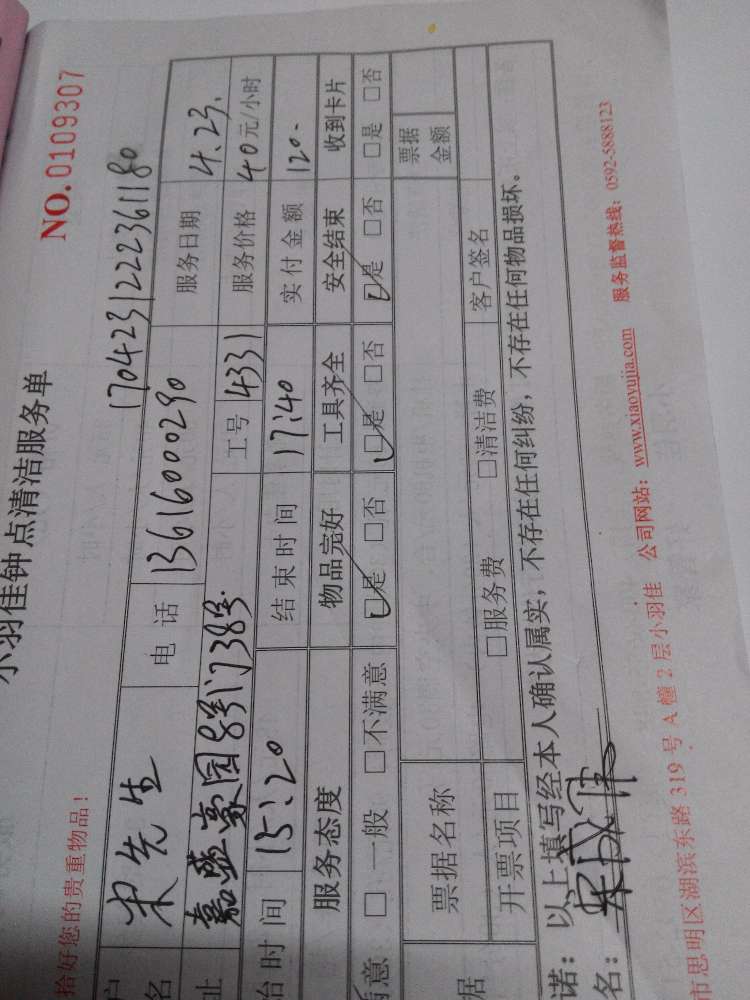 小羽佳钟点清洁服务单
NO.0109307
拾好您的贵重物品!
170423122236180
名 宋先生 电话 13616000290 服务日期 4.23.
址 嘉盛豪园8号门38号 工号 4331 服务价格 40元/小时
始时间 15:20 结束时间 17:40 实付金额 120-
服务态度 物品完好 工具齐全 安全结束 收到卡片
满意 □一般 □不满意 □是 □否 □是 □否 □是 □否 □是 □否
据 票据名称 票据金额
开票项目 □服务费 □清洁费 客户签名
诺:以上填写经本人确认属实,不存在任何纠纷,不存在任何物品损坏。
名:
市思明区湖滨东路319号A幢2层小羽佳 公司网站:www.xiaoyujia.com 服务监督热线:0592-5888123